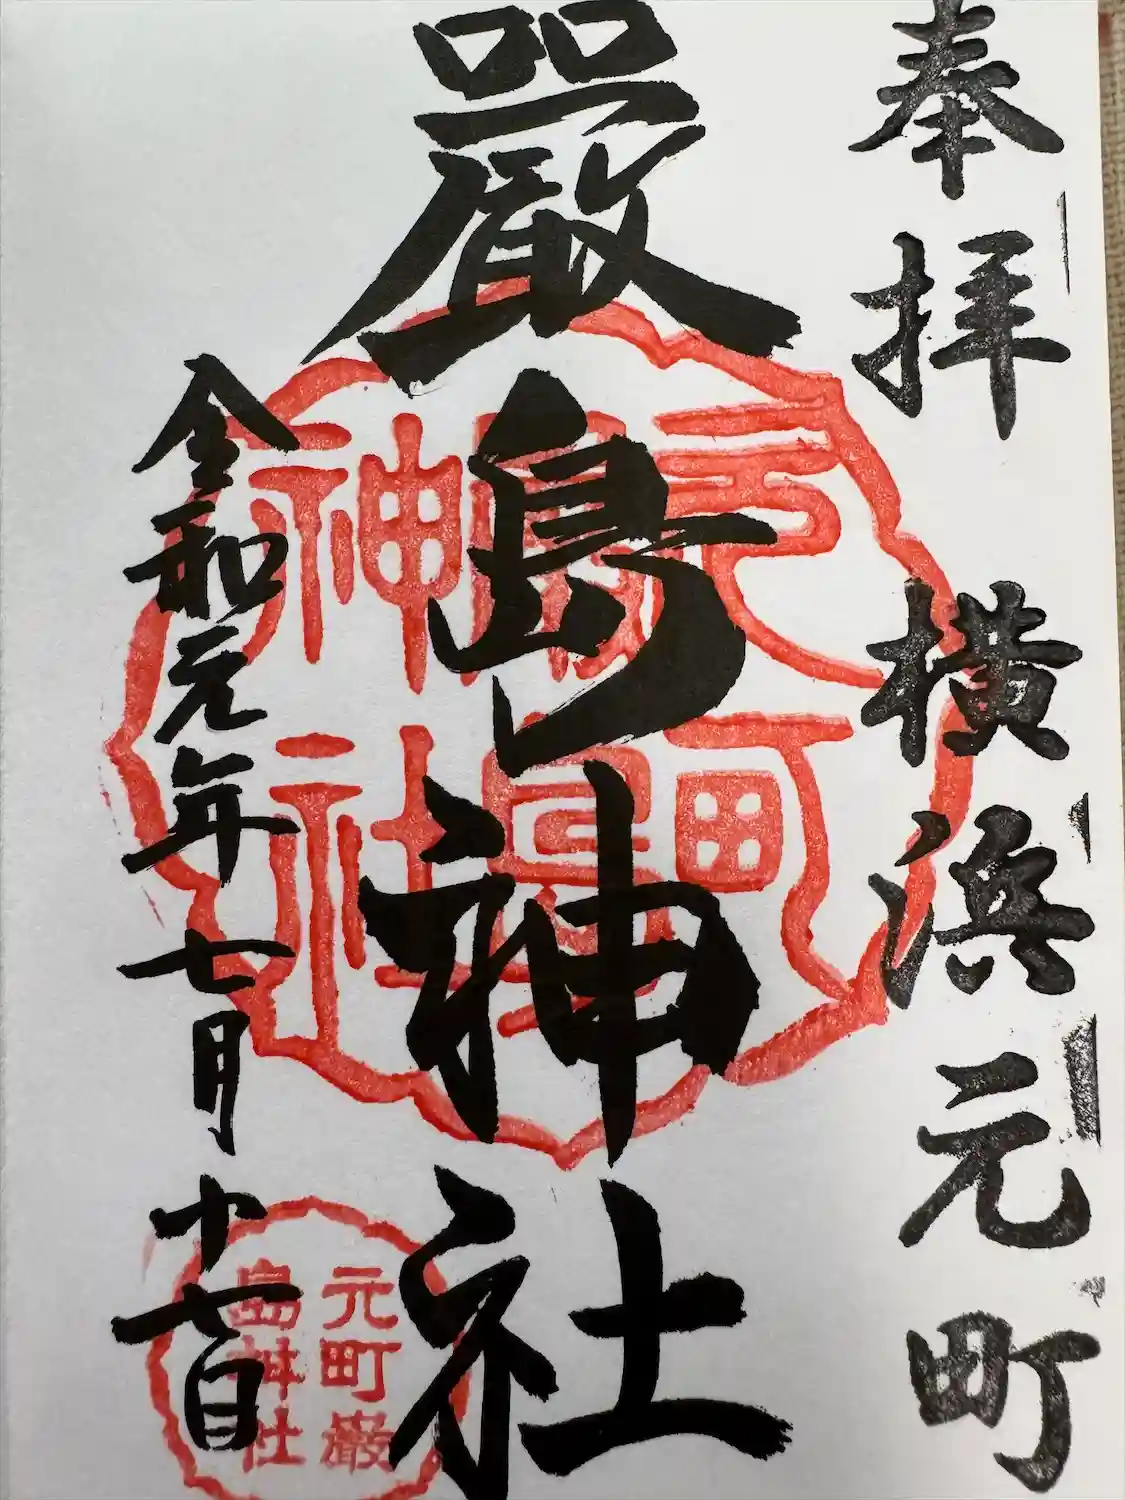 奉拝 横浜元町
厳島神社
令和元年七月十七日
元町
嚴島
神社
元町嚴
島神社